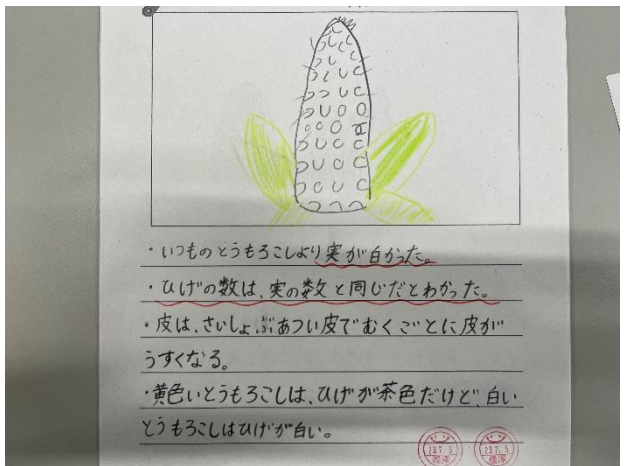 ・いつものとうもろこしより実が白かった。
・ひげの数は、実の数と同じだとわかった。
・皮は、さいしょぶあつい皮でむくごとに皮が
うすくなる。
・黄色いとうもろこしは、ひげが茶色だけど、白い
とうもろこしはひげが白い。